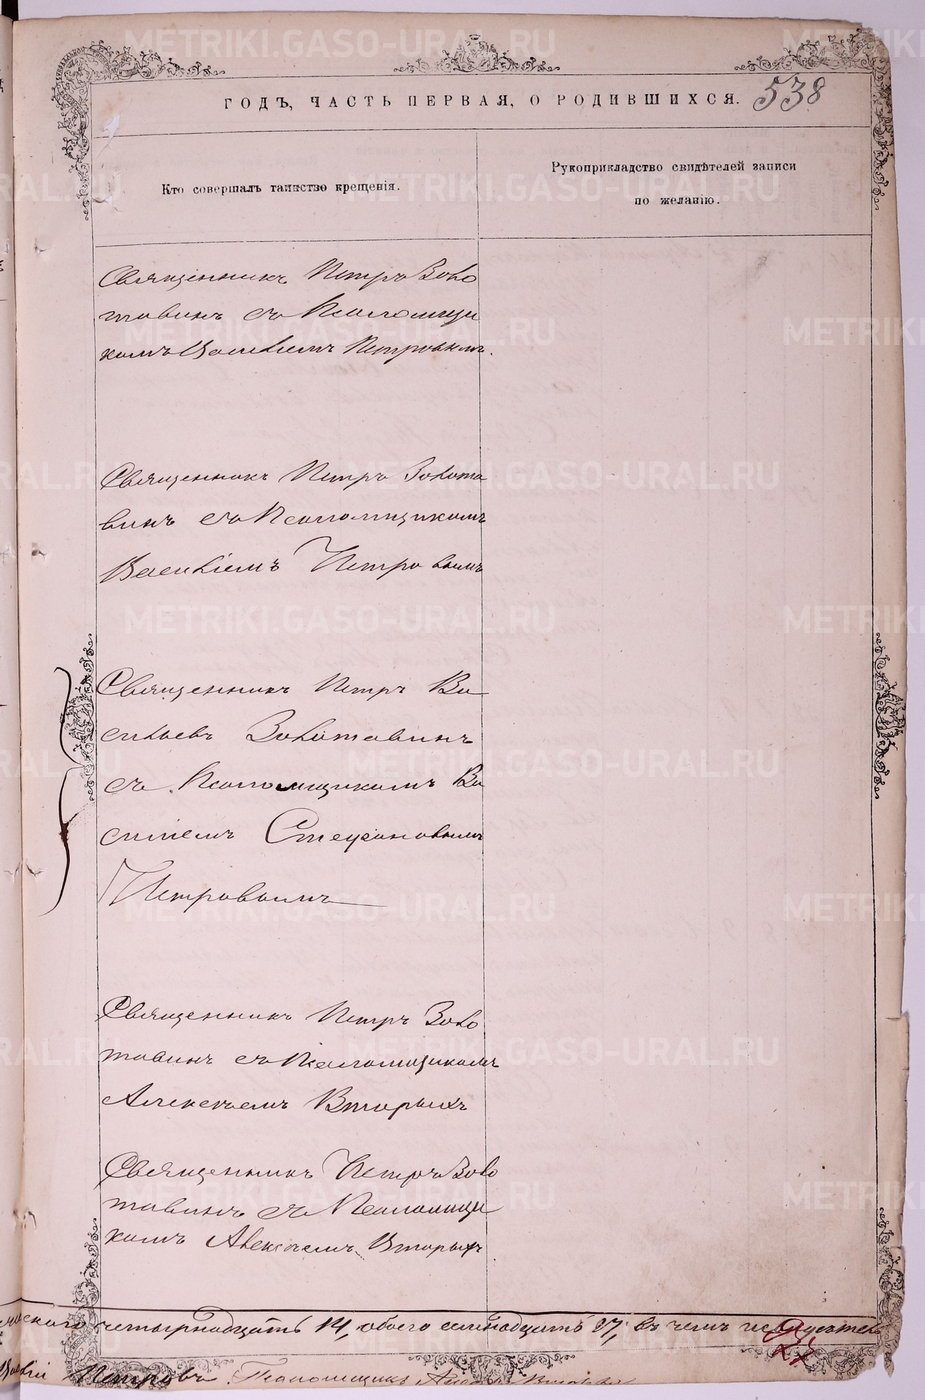 ГОДЪ, ЧАСТЬ ПЕРВАЯ, О РОДИВШИХСЯ. 538
Кто совершалъ таинство крещенія.
Рукоприкладство свидѣтелей записи
по желанію.
Священникъ Петръ Золо
тавинъ съ Псаломщи
комъ Василіемъ Петровымъ.
Священникъ Петръ Золота
винъ съ Псаломщикомъ
Василіемъ Петровымъ
Священникъ Петръ Ва
сильевъ Золотавинъ
съ Псаломщикомъ Ва
силіемъ Стефановымъ
Петровымъ
Священникъ Петръ Золо
тавинъ съ Псаломщикомъ
Алексѣемъ Вторыхъ
Священникъ Петръ Золо
тавинъ съ Псаломщи
комъ Алексѣемъ Вторыхъ
четырнадцать 14, обоего семнадцать 17, въ чемъ
Петровъ Псаломщикъ
METRIKI.GASO-URAL.RU